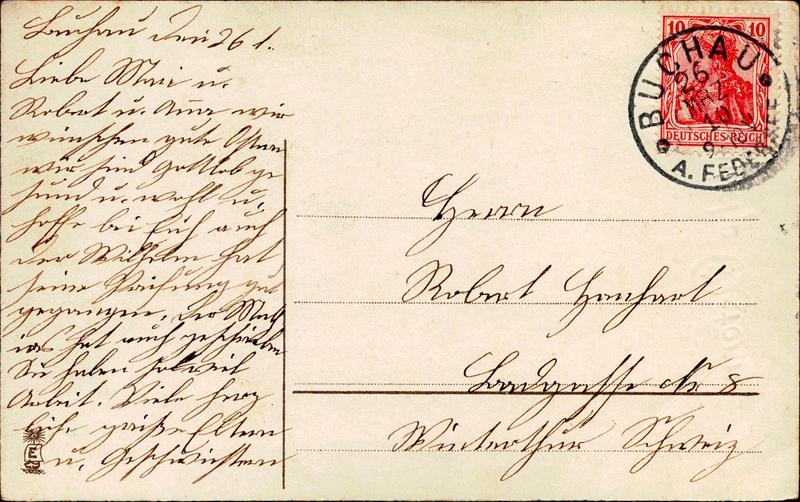 Buchau den 26 1.
Liebe Mari u.
Robert u. Anna wir
wünschen gute Ostern
wir sind gottlob ge
sund u. wohl u.
hoffe bei Euch auch
der Wilhelm hat
seine Prüfung gut
gegangen, der Matth
ias hat auch geschrieben
Sie haben soviel
Arbeit. Viele herz
liche grüße Eltern
u. Geschwistern
10 10
DEUTSCHES REICH
BUCHAU
26
MRZ
10
A. FEDERSEE
Herrn
Robert Hanhart
Badgasse Nr 8
Winterthur Schweiz
E